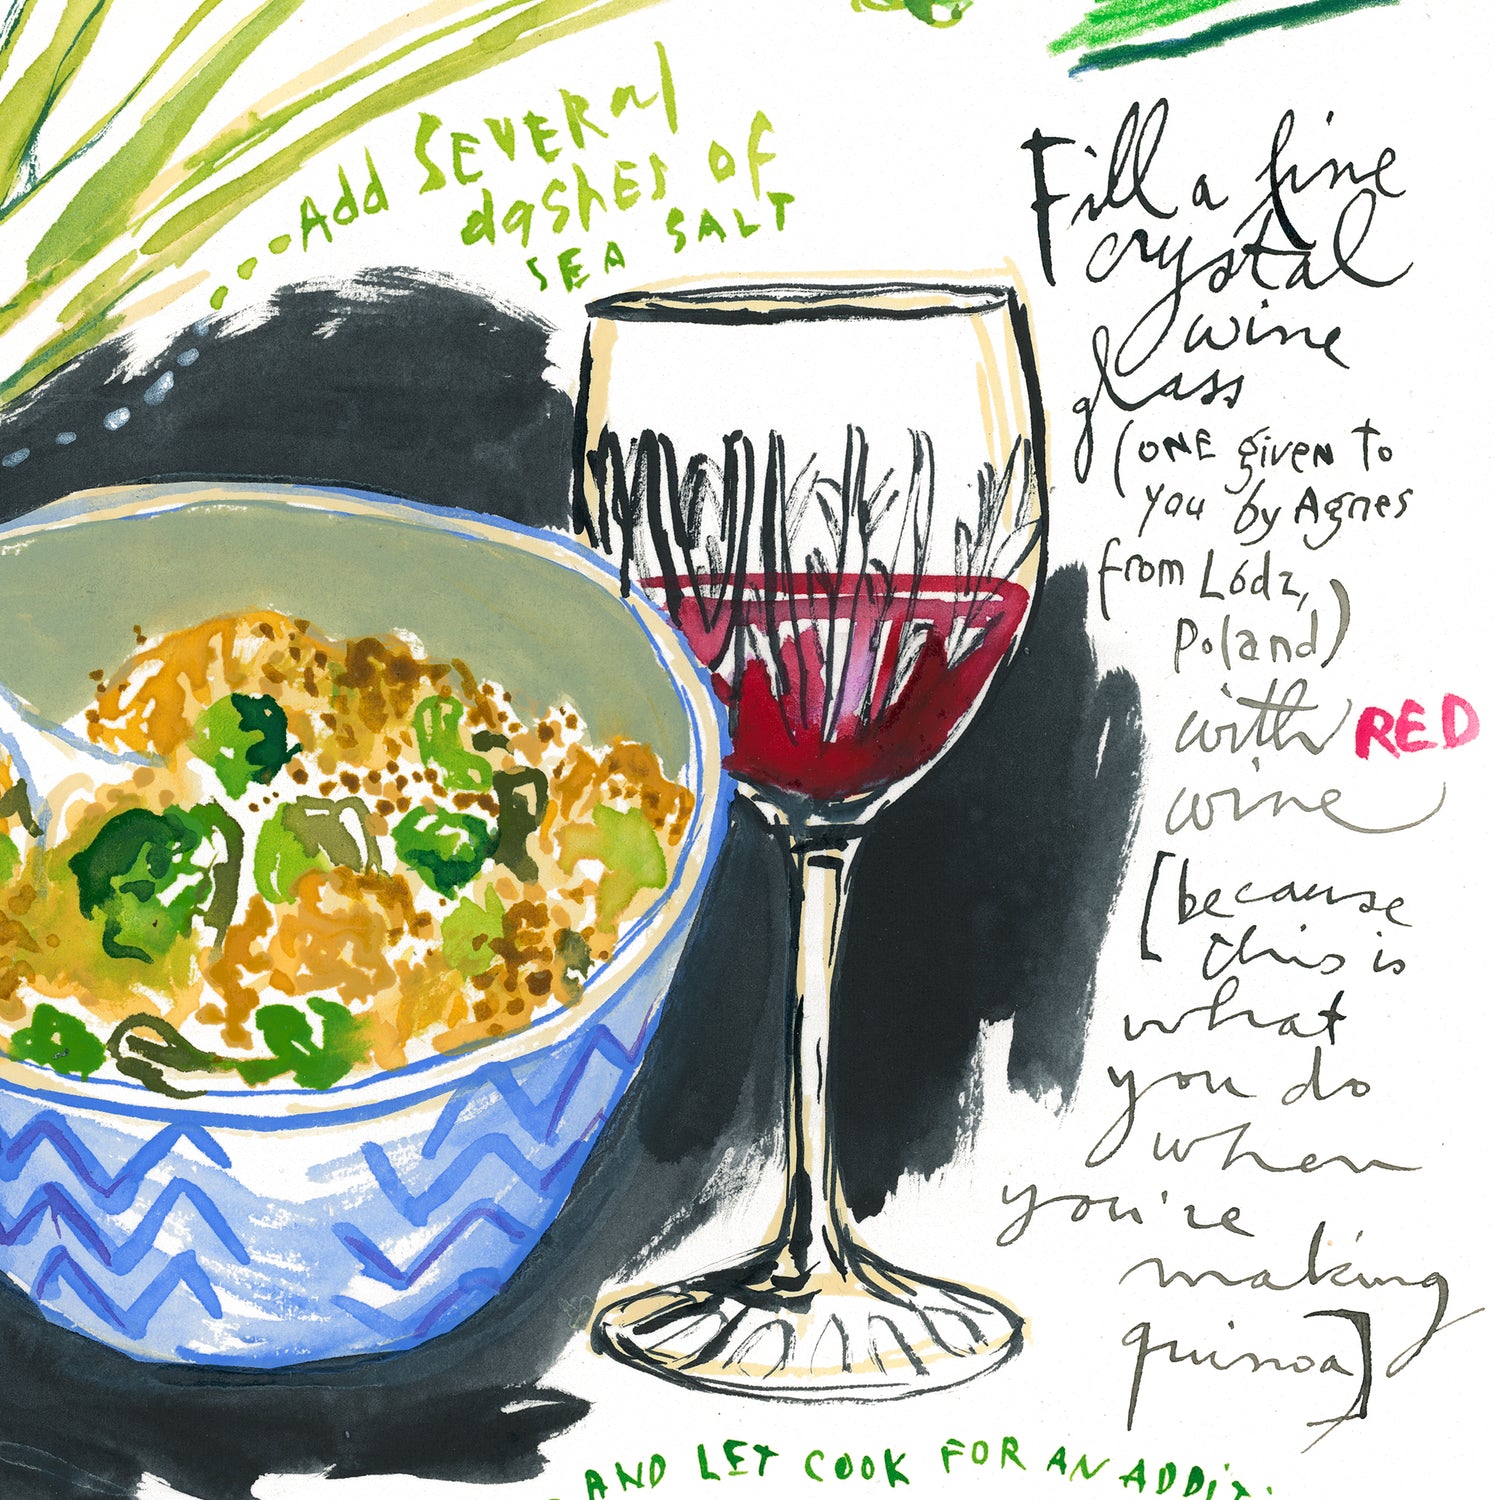 Add SEVERal
dashes of
SEA SALT
Fill a fine
crystal
wine
glass
(ONE given to
you by Agnes
from Lódz,
Poland)
with RED
wine
[because
this is
what
you do
when
you're
making
quinoa]
AND LET COOK FOR AN